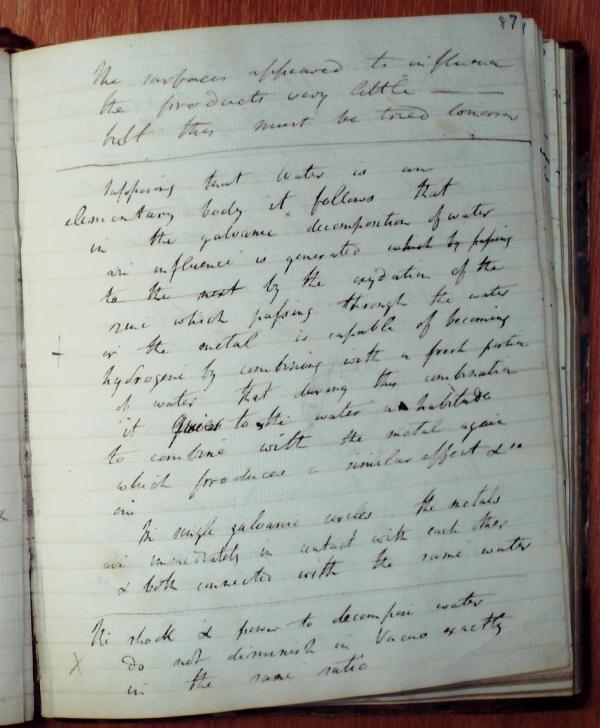 87
the surfaces appeared to influence
the products very little ——
but this must be tried tomorrow
Supposing that Water is an
elementary body it follows that
in the galvanic decomposition of water
an influence is generated which by passing
to the next by the oxydation of the
zinc which passing through the water
or the metal is capable of becoming
hydrogene by combining with a fresh portion
of water that during this combination
it gives to the water a habitude
to combine with the metal again
which produces a similar effect & so
on
In single galvanic circles the metals
are immediately in contact with each other
& both connected with the same water
The shock & power to decompose water
X do not diminish in Vacuo exactly
in the same ratio